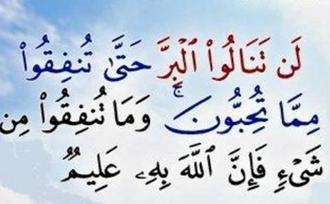 لَن تَنَالُوا۟ ٱلْبِرَّ حَتَّىٰ تُنفِقُوا۟
مِمَّا تُحِبُّونَ ۚ وَمَا تُنفِقُوا۟ مِن
شَىْءٍ فَإِنَّ ٱللَّهَ بِهِۦ عَلِيمٌ